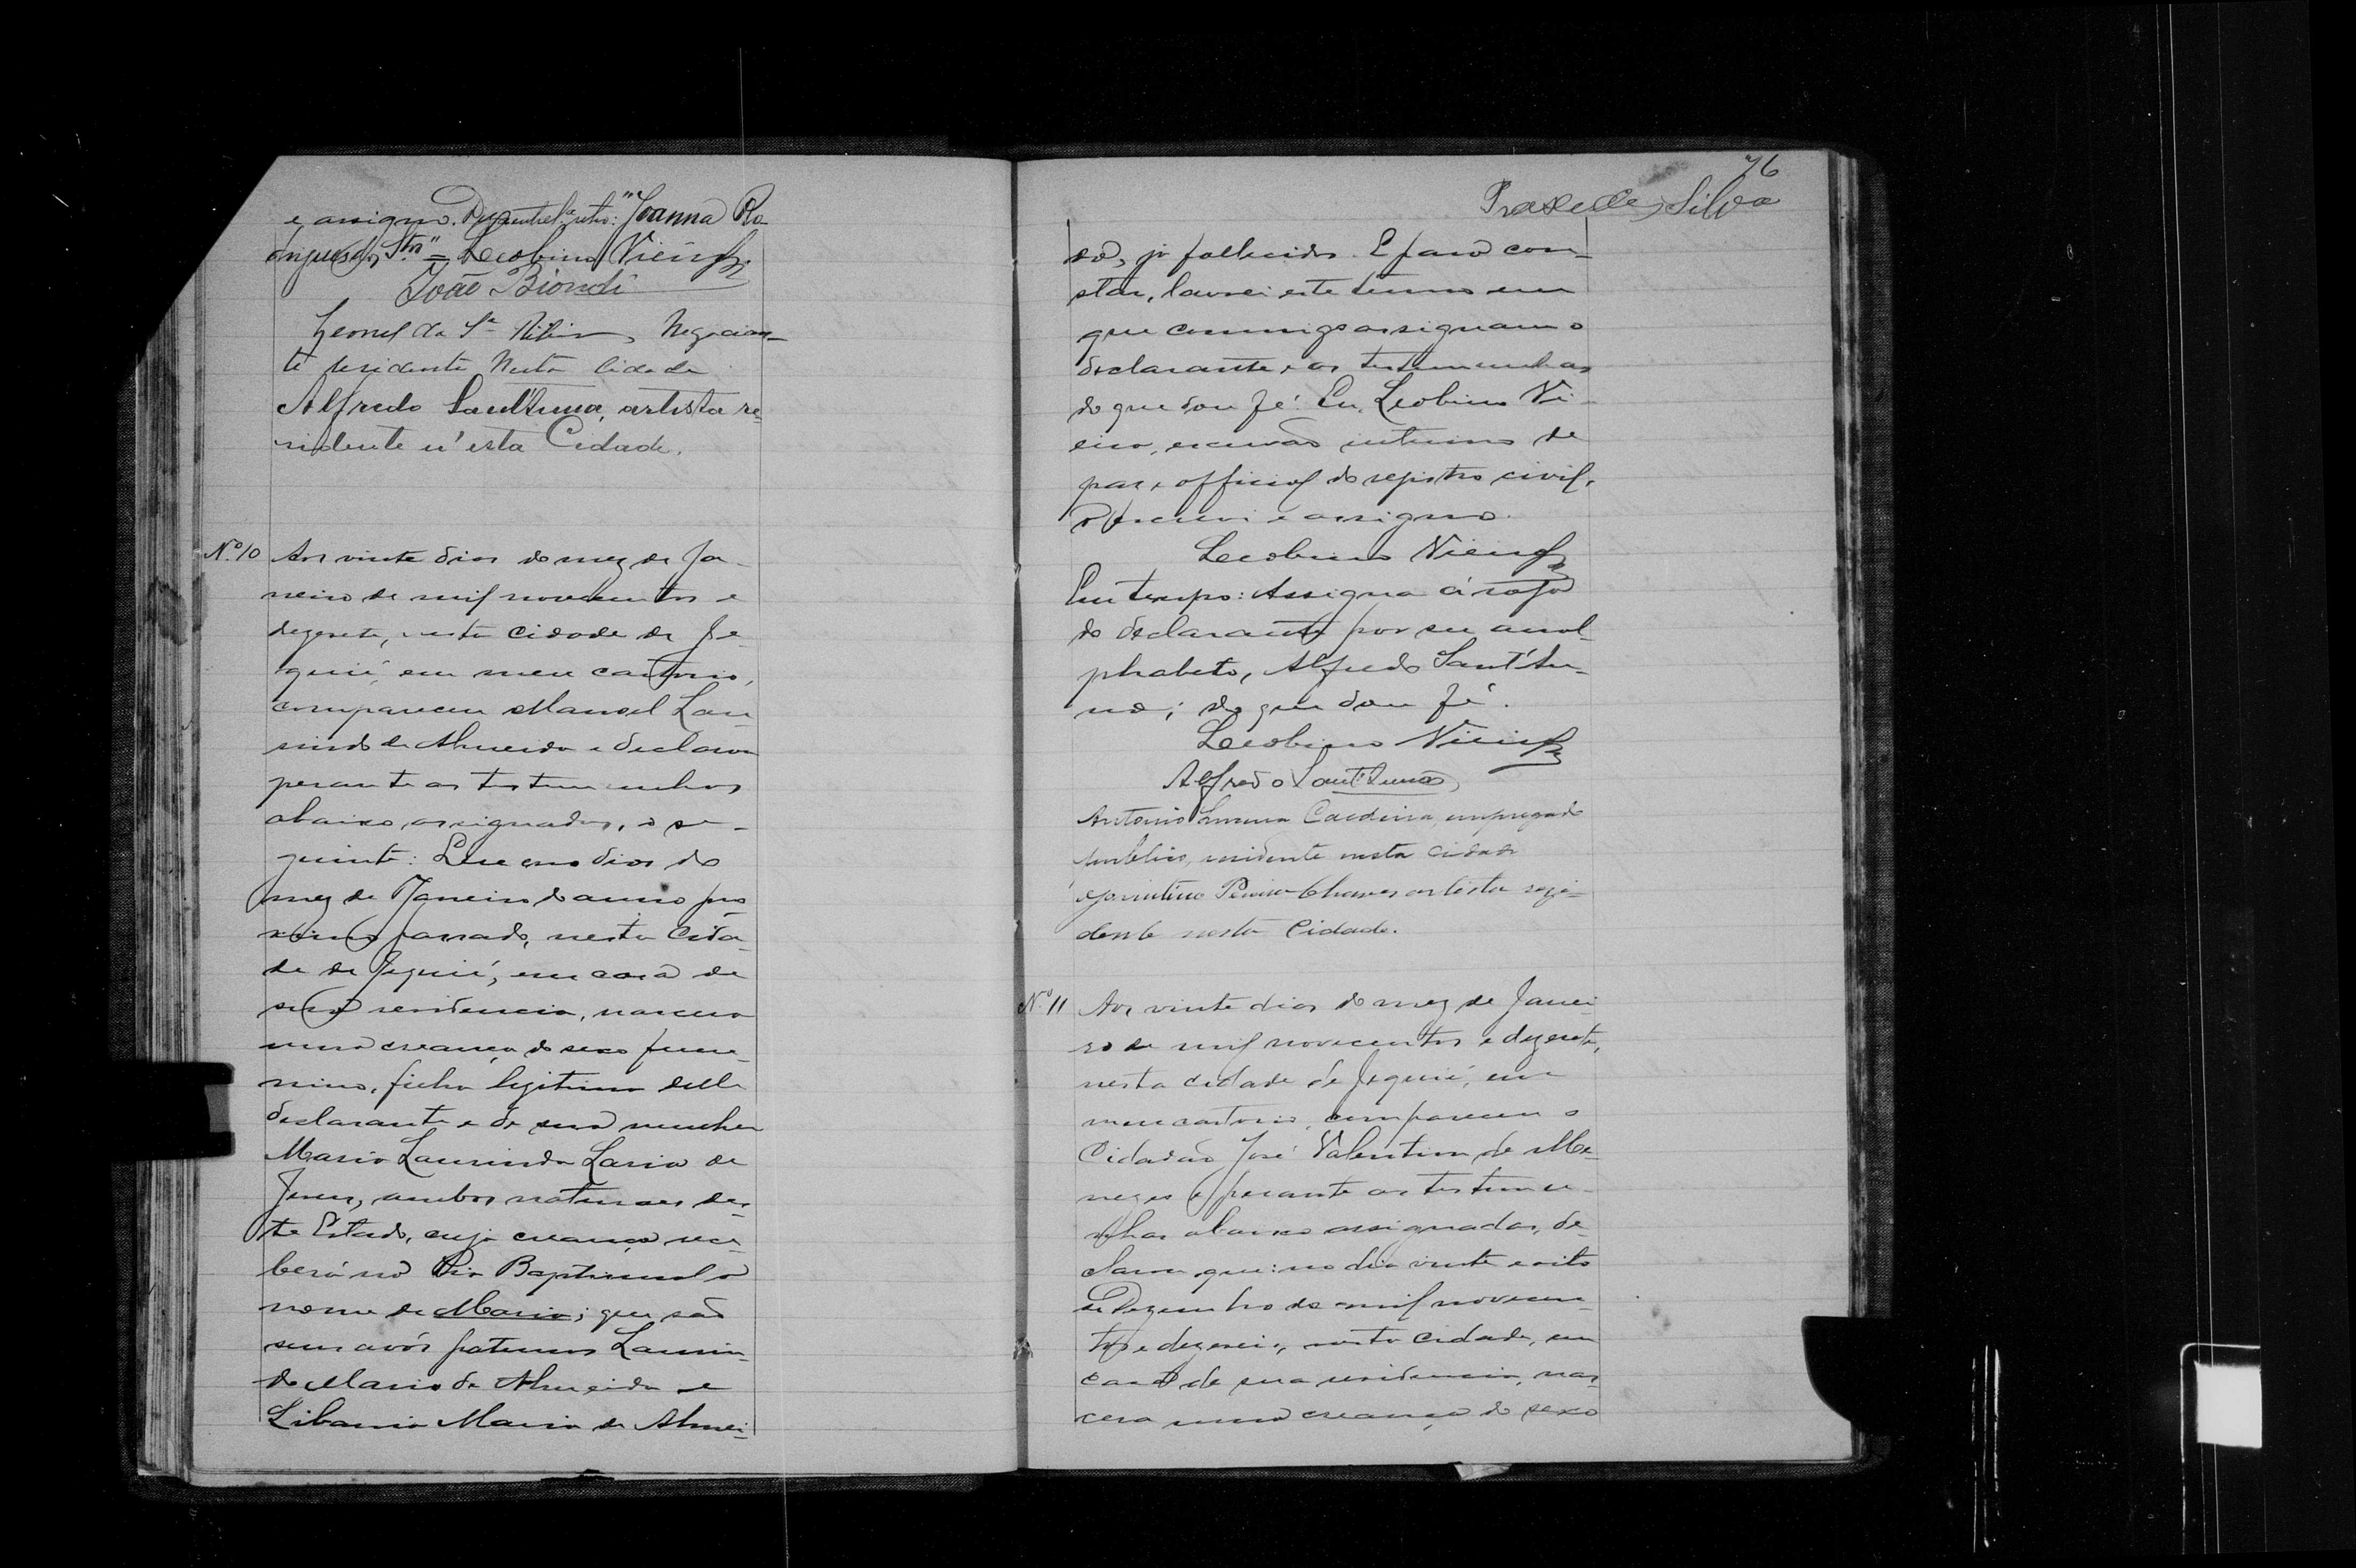 e assigno. "Joanna Ro-
drigues dos Stos" = Leobino Vieira
João Biondi
Leonel da Sa Ribeiro, Negocian-
te residente Nesta Cidade
Alfredo Sant'Anna, artista re-
sidente n'esta Cidade.
No 10 Aos vinte dias do mez de Ja-
neiro de mil novecentos e
dezesete, nesta cidade de Je-
quié, em meu cartorio,
compareceu Manoel Lau-
rindo de Almeida e declarou
perante as testemunhas
abaixo assignadas, o se-
guinte: Que aos dias do
mez de Janeiro do anno pro-
ximo passado, nesta Cida-
de de Jequié, em casa de
sua residencia, nasceu
uma creança do sexo femi-
nino, filha legitima delle
declarante e de sua mulher
Maria Laurinda Laria de
Jesus, ambos naturaes des-
te Estado, cuja creança rece-
berá na Pia Baptismal o
nome de Maria; que são
seus avós paternos Laurin-
do Mario de Almeida e
Libania Maria de Almei-
76
Praxedes Silva
da, já fallecidos. E para con-
star, lavrei este termo em
que commigo assignam o
declarante e as testemunhas
do que dou fé. Eu, Leobino Vi-
eira, escrivão interino de
paz e official do registro civil,
o escrevi e assigno.
Leobino Vieira
Em tempo: Assigna á rogo
do declarante por ser anal-
phabeto, Alfredo Sant'An-
na; do que dou fé.
Leobino Vieira
Alfredo Sant'Anna
Antonio Cardoso, empregado
publico, residente nesta cidade
Pereira Chaves artista resi-
dente nesta Cidade.
No 11 Aos vinte dias do mez de Janei-
ro de mil novecentos e dezesete,
nesta cidade de Jequié, em
meu cartorio, compareceu o
Cidadão José Valentim de Me-
nezes e perante as testemu-
nhas abaixo assignadas, de-
clarou que: no dia vinte e oito
de Dezembro de mil novecen-
tos e dezeseis, nesta cidade, em
casa de sua residencia, nas-
cera uma creança do sexo